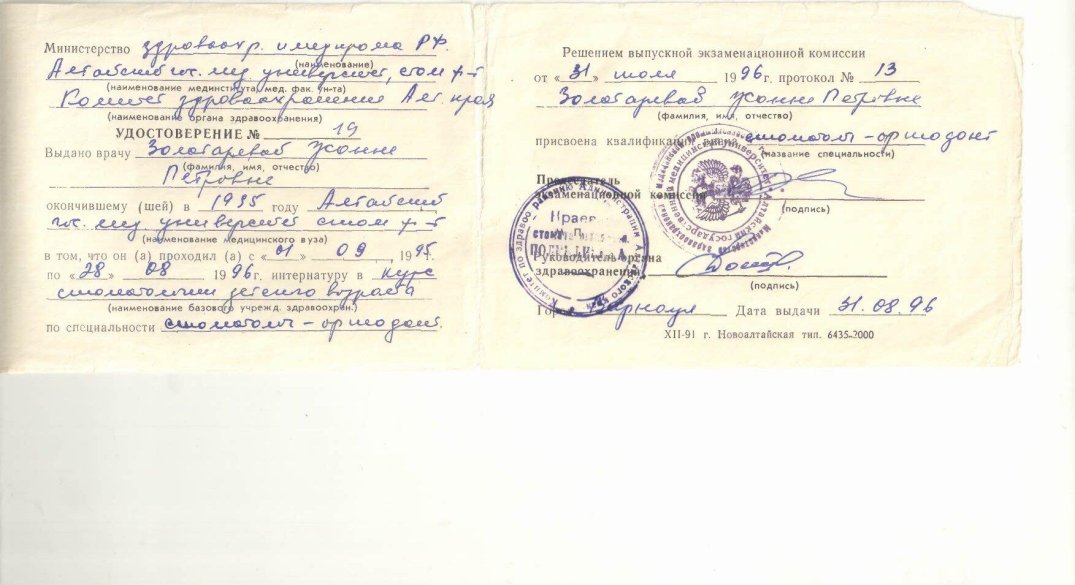 Министерство здравоохр. и медпрома РФ.
(наименование)
Алтайский гос. мед. университет, стом. ф-т
(наименование мединститута, мед. фак. ун-та)
Комитет здравоохранения Алт. края
(наименование органа здравоохранения)
УДОСТОВЕРЕНИЕ № 19
Выдано врачу Золотаревой Жанне
(фамилия, имя, отчество)
Петровне
окончившему (шей) в 1995 году Алтайский
гос. мед. университет стом. ф-т
(наименование медицинского вуза)
в том, что он (а) проходил (а) с «01» 09 1995г.
по «28» 08 1996г. интернатуру в курс
стоматологии детского возраста
(наименование базового учрежд. здравоохран.)
по специальности стоматолог-ортодонт.
Решением выпускной экзаменационной комиссии
от «31» июля 1996г. протокол № 13
Золотаревой Жанне Петровне
(фамилия, имя, отчество)
присвоена квалификация врача стоматолог-ортодонт
(название специальности)
Председатель
экзаменационной комиссии
(подпись)
Руководитель органа
здравоохранения
(подпись)
Город Барнаул Дата выдачи 31.08.96
XII-91 г. Новоалтайская тип. 6435-2000